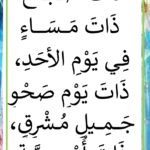 ذَاتَ مَسَــاءٍ
فِي يَوْمِ الأَحَدِ،
ذَاتَ يَوْمٍ صَحْوٍ
جَمِيلٍ مُشْرِقٍ،
ذَاتَ